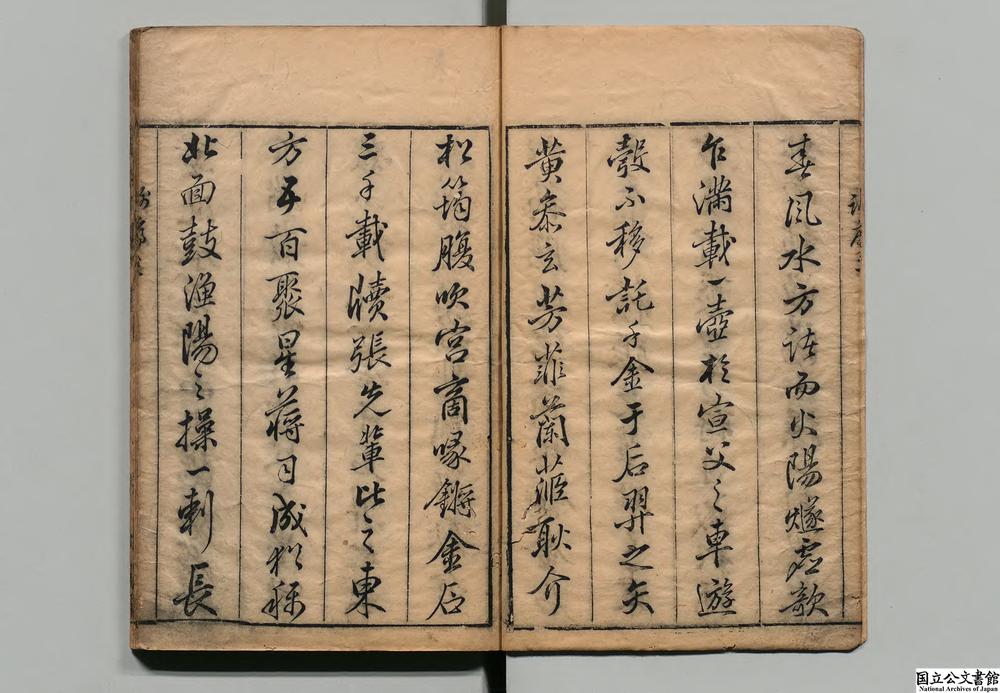 春風水方諸而火陽燧虛欹
乍滿載一壺於宣父之車遊
彀不移託千金于后羿之矢
黄泰玄芳菲蘭茝耿介
松筠腹吹宮商喙鏘金石
三千載牘張先輩比之東
方五百聚星蔣司成猶稱
北面鼓漁陽之操一刺長
国立公文書館
National Archives of Japan